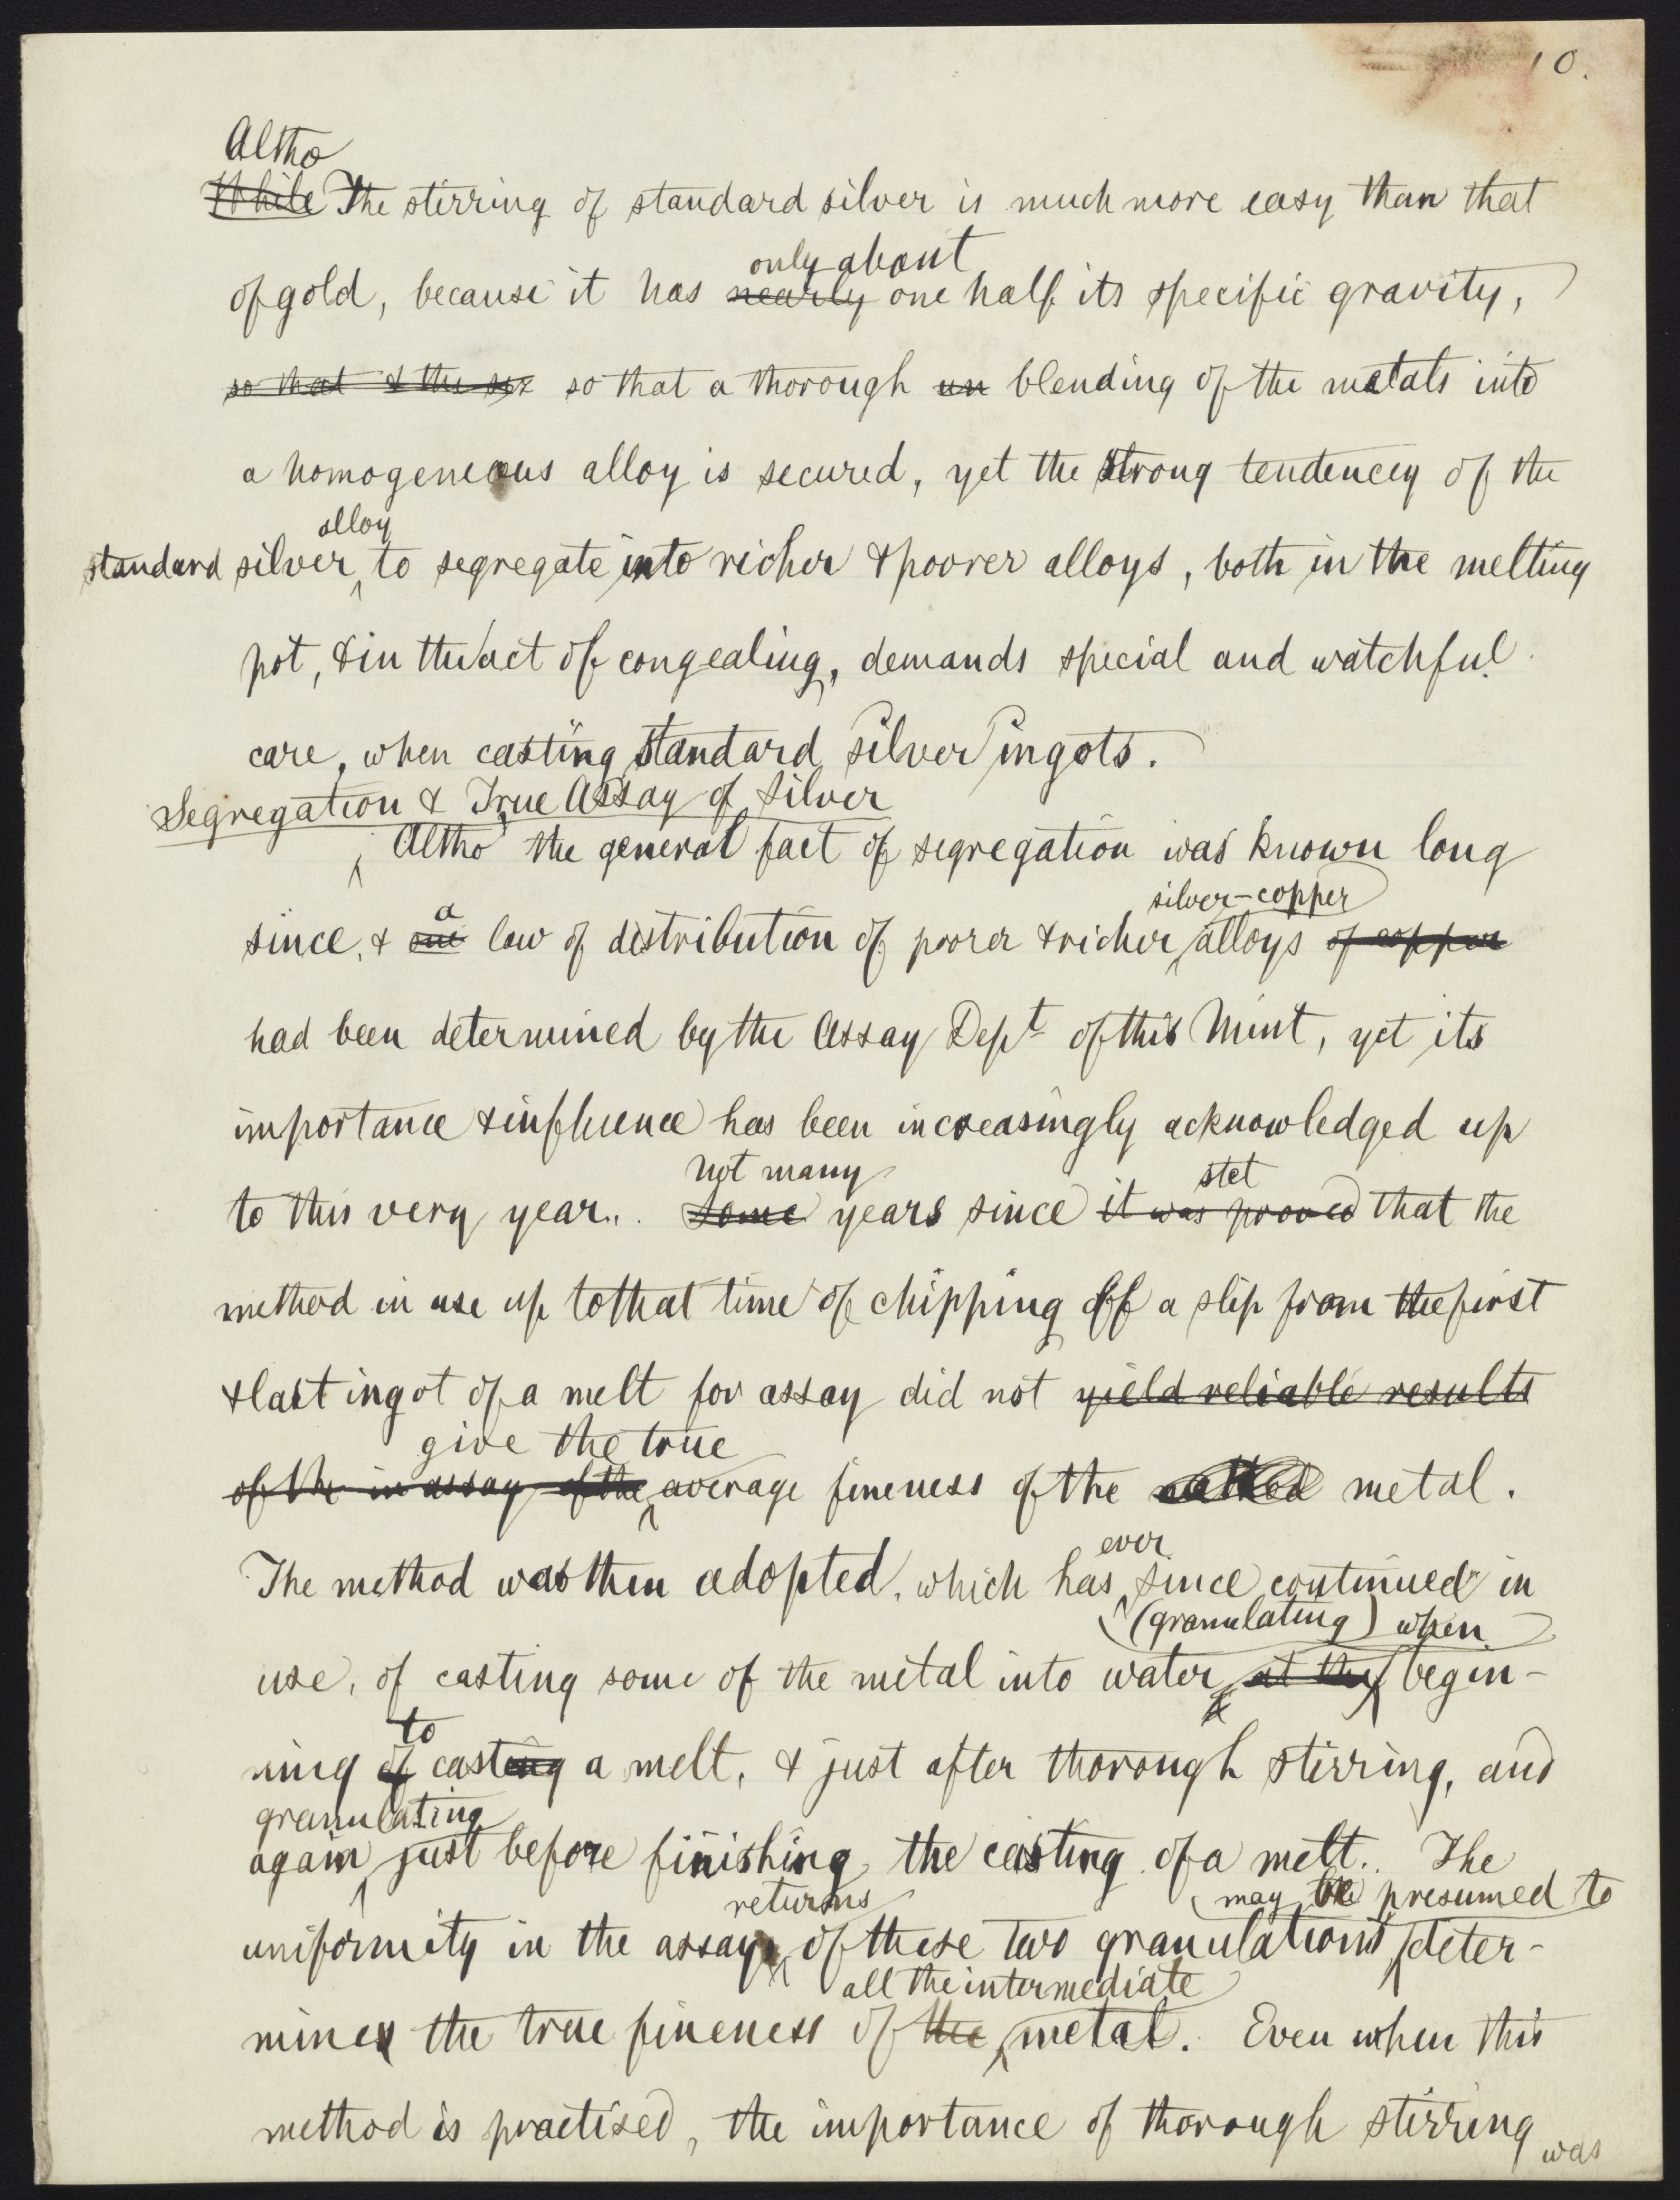 10.
Altho
While The stirring of standard silver is much more easy than that
only about
of gold, because it has nearly one half its specific gravity,
so that & the so that a thorough un blending of the metals into
a homogeneous alloy is secured, yet the strong tendencey of the
alloy
standard silver, to segregate into richer & poorer alloys, both in the melting
pot, & in the act of congealing, demands special and watchful
care, when casting standard silver ingots.
Segregation & True Assay of Silver
Altho' the general fact of segregation was known long
a silver-copper
since, & one law of distribution of poorer & richer alloys of copper
had been determined by the Assay Dept of this Mint, yet its
importance & influence has been increasingly acknowledged up
not many stet
to this very year. Some years since it was proved that the
method in use up to that time of chipping off a slip from the first
& last ingot of a melt for assay did not yield reliable results
give the true
of the in assay of the average fineness of the metal.
ever
The method was then adopted, which has since continued in
(granulating) when
use, of casting some of the metal into water at the begin-
to
ning of casting a melt, & just after thorough stirring, and
granulating
again just before finishing the casting of a melt. The
returns may be presumed to
uniformity in the assay of these two granulations deter-
all the intermediate
mines the true fineness of the metal. Even when this
method is practised, the importance of thorough stirring
was